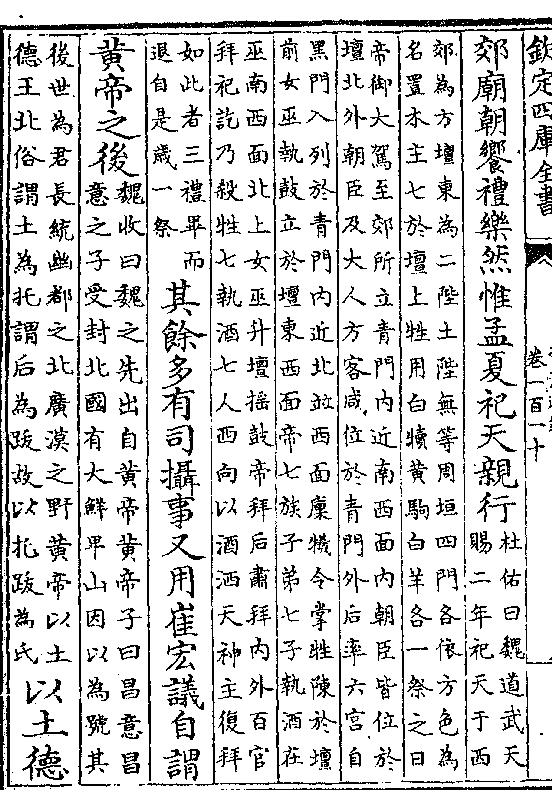 欽定四庫全書
卷一百一十
郊廟朝饗禮樂然惟孟夏祀天親行
杜佑曰魏道武天
賜二年祀天于西
郊為方壇東為二陛土陛無等周垣四門各依方色為
名置木主七於壇上牲用白犢黄駒白羊各一祭之日
帝御大駕至郊所立青門内近南西面内朝臣皆位於
壇北外朝臣及大人方客咸位於青門外后率六宮自
黑門入列於青門内近北竝西面廩犧令掌牲陳於壇
前女巫執鼓立於壇東西面帝七族子弟七子執酒在
巫南西面北上女巫升壇搖鼓帝拜后肅拜内外百官
拜祀訖乃殺牲七執酒七人西向以酒洒天神主復拜
如此者三禮畢而
退自是歲一祭
其餘多有司攝事又用崔宏議自謂
黄帝之後
魏收曰魏之先出自黄帝黄帝子曰昌意昌
意之子受封北國有大鮮卑山因以為號其
後世為君長統幽都之北廣漠之野黄帝以土
德王北俗謂土為托謂后為跋故以托跋為氏
以土德